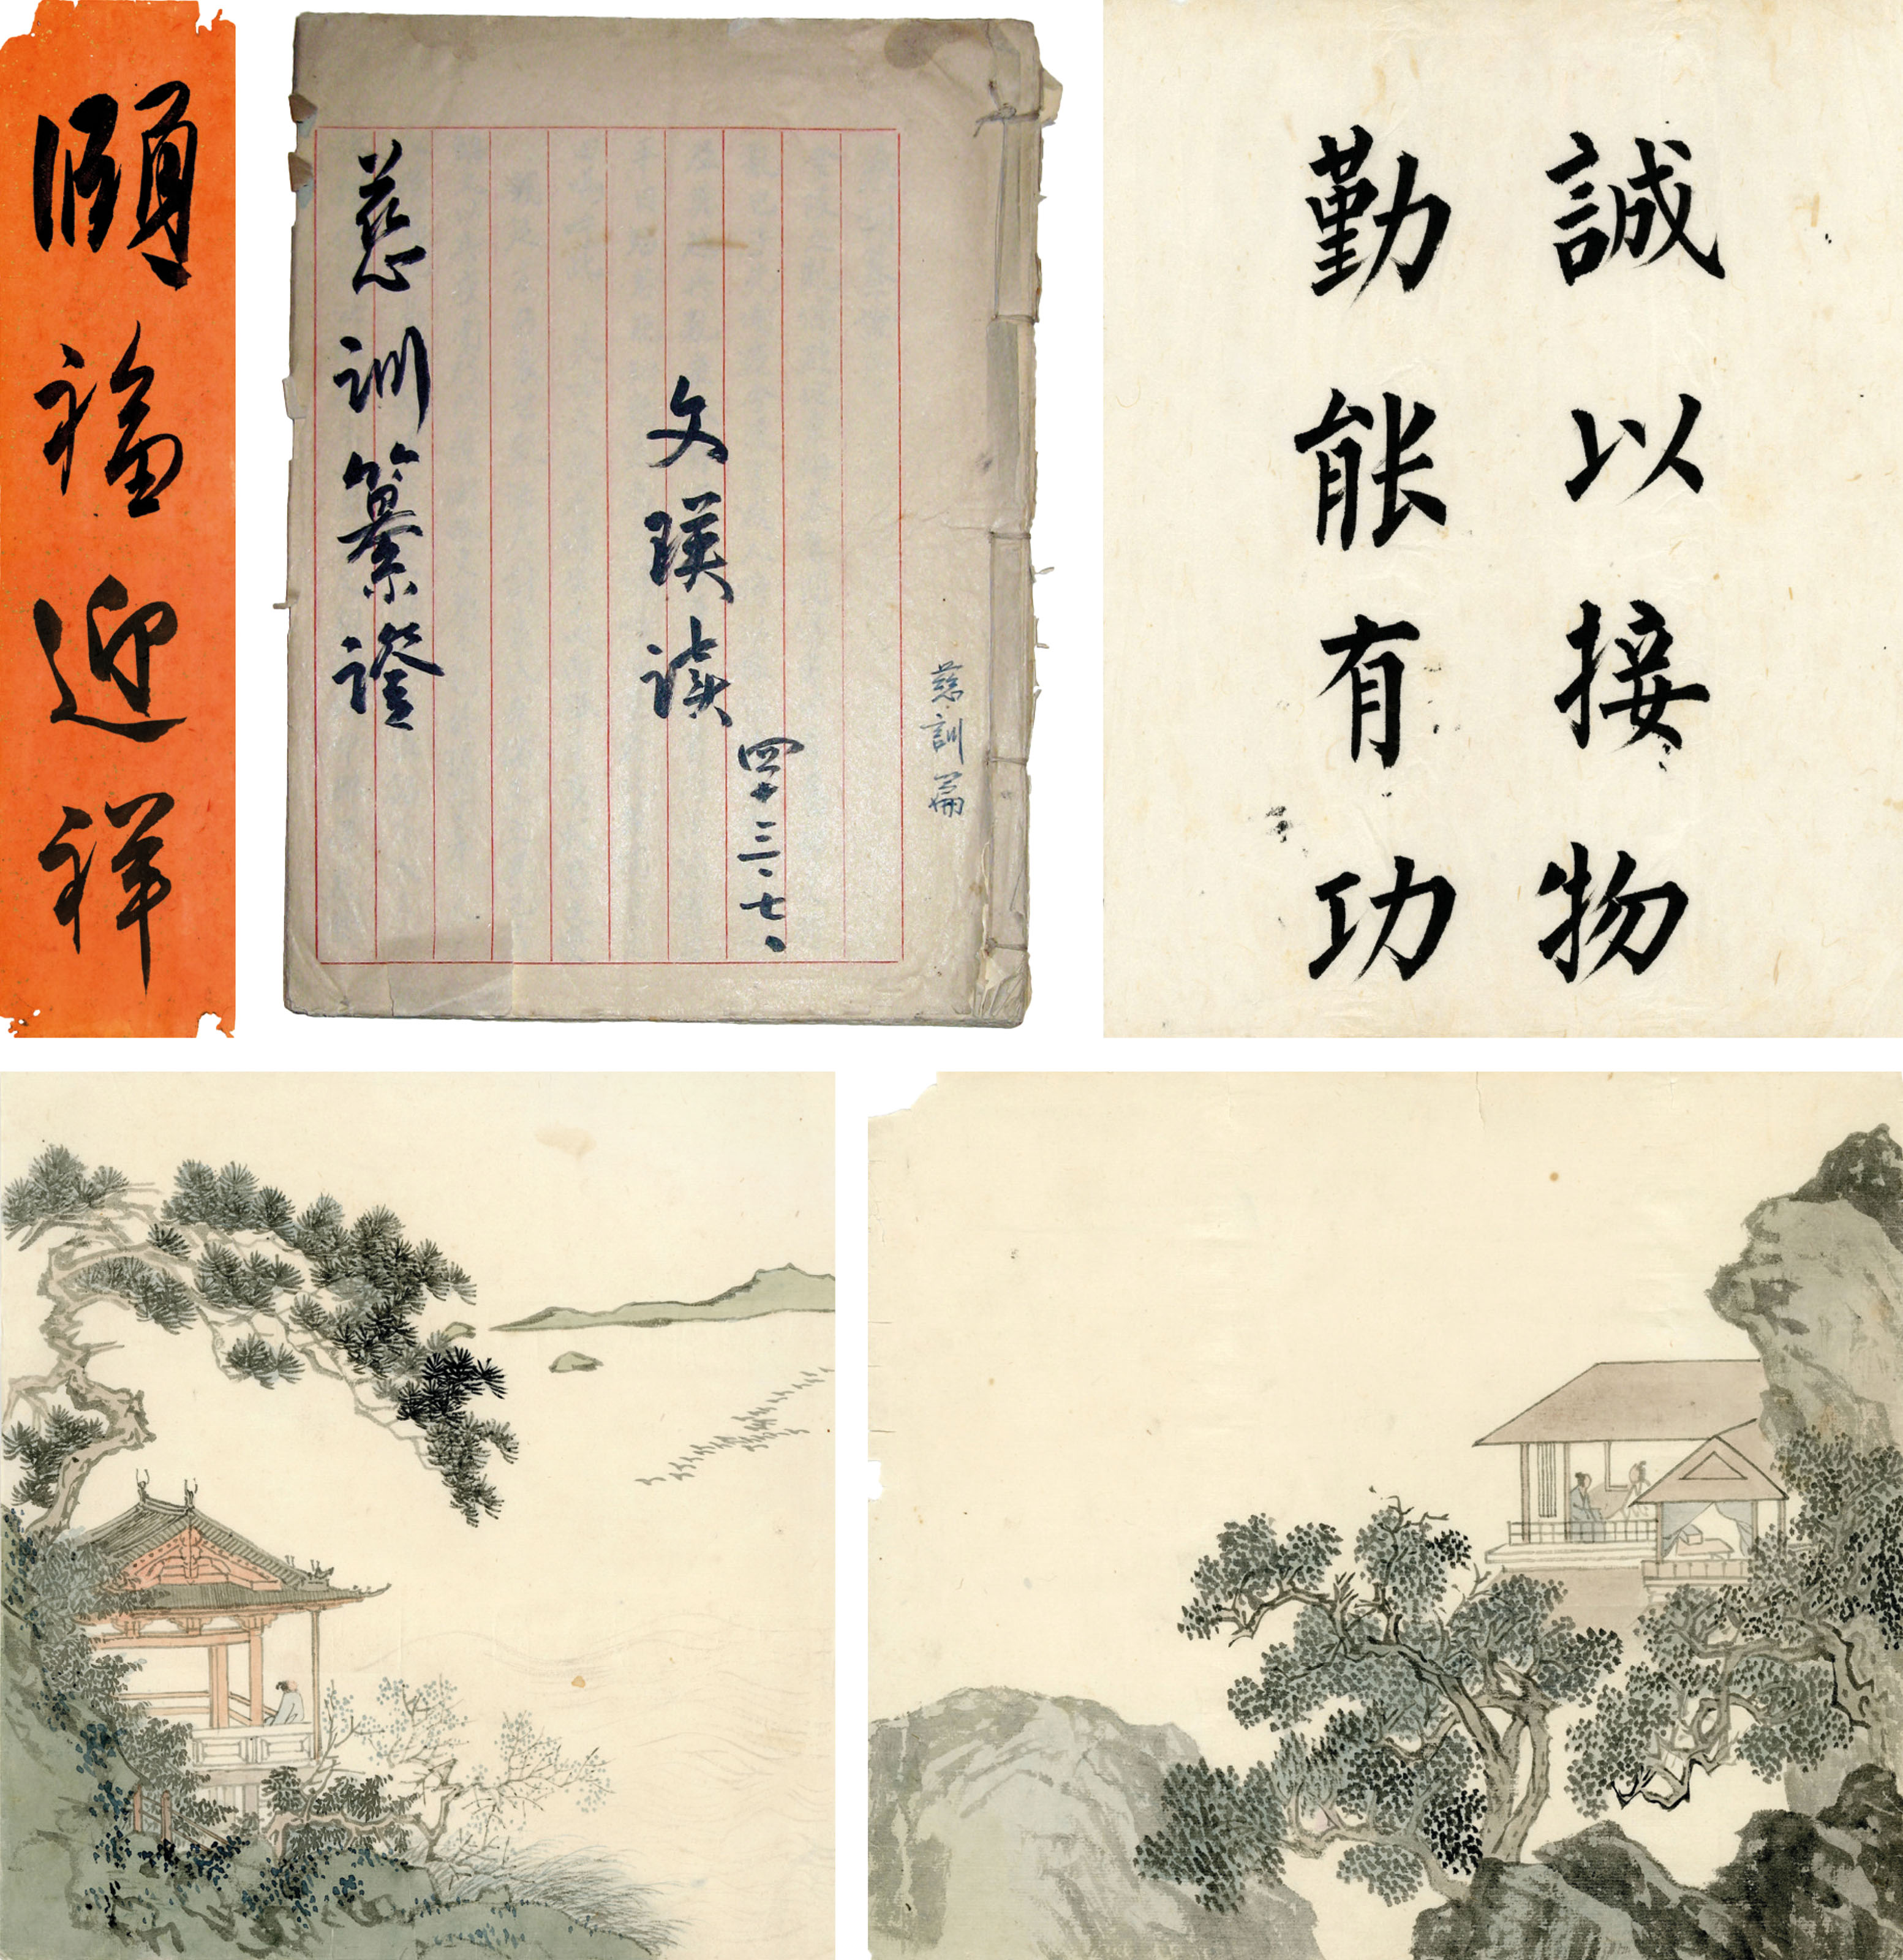 頤福迎祥
慈訓纂證
文瑛读
四十三·七·
慈訓篇
誠以接物
勤能有功